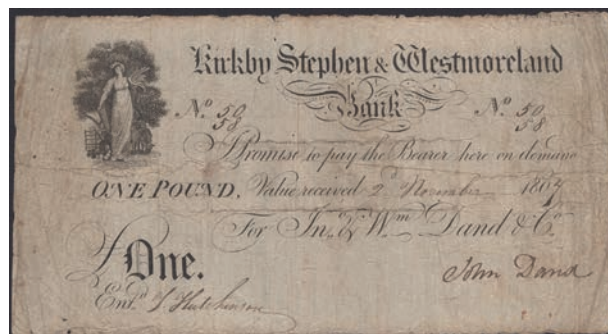 Kirkby Stephen & Westmoreland
Bank
No. 50 No. 50
58 58
I Promise to pay the Bearer here on demand
ONE POUND, Value received 2d November 1807
For Jno. & Wm. Dand & Co.
£ One. John Dand
Entd. J Hutchinson